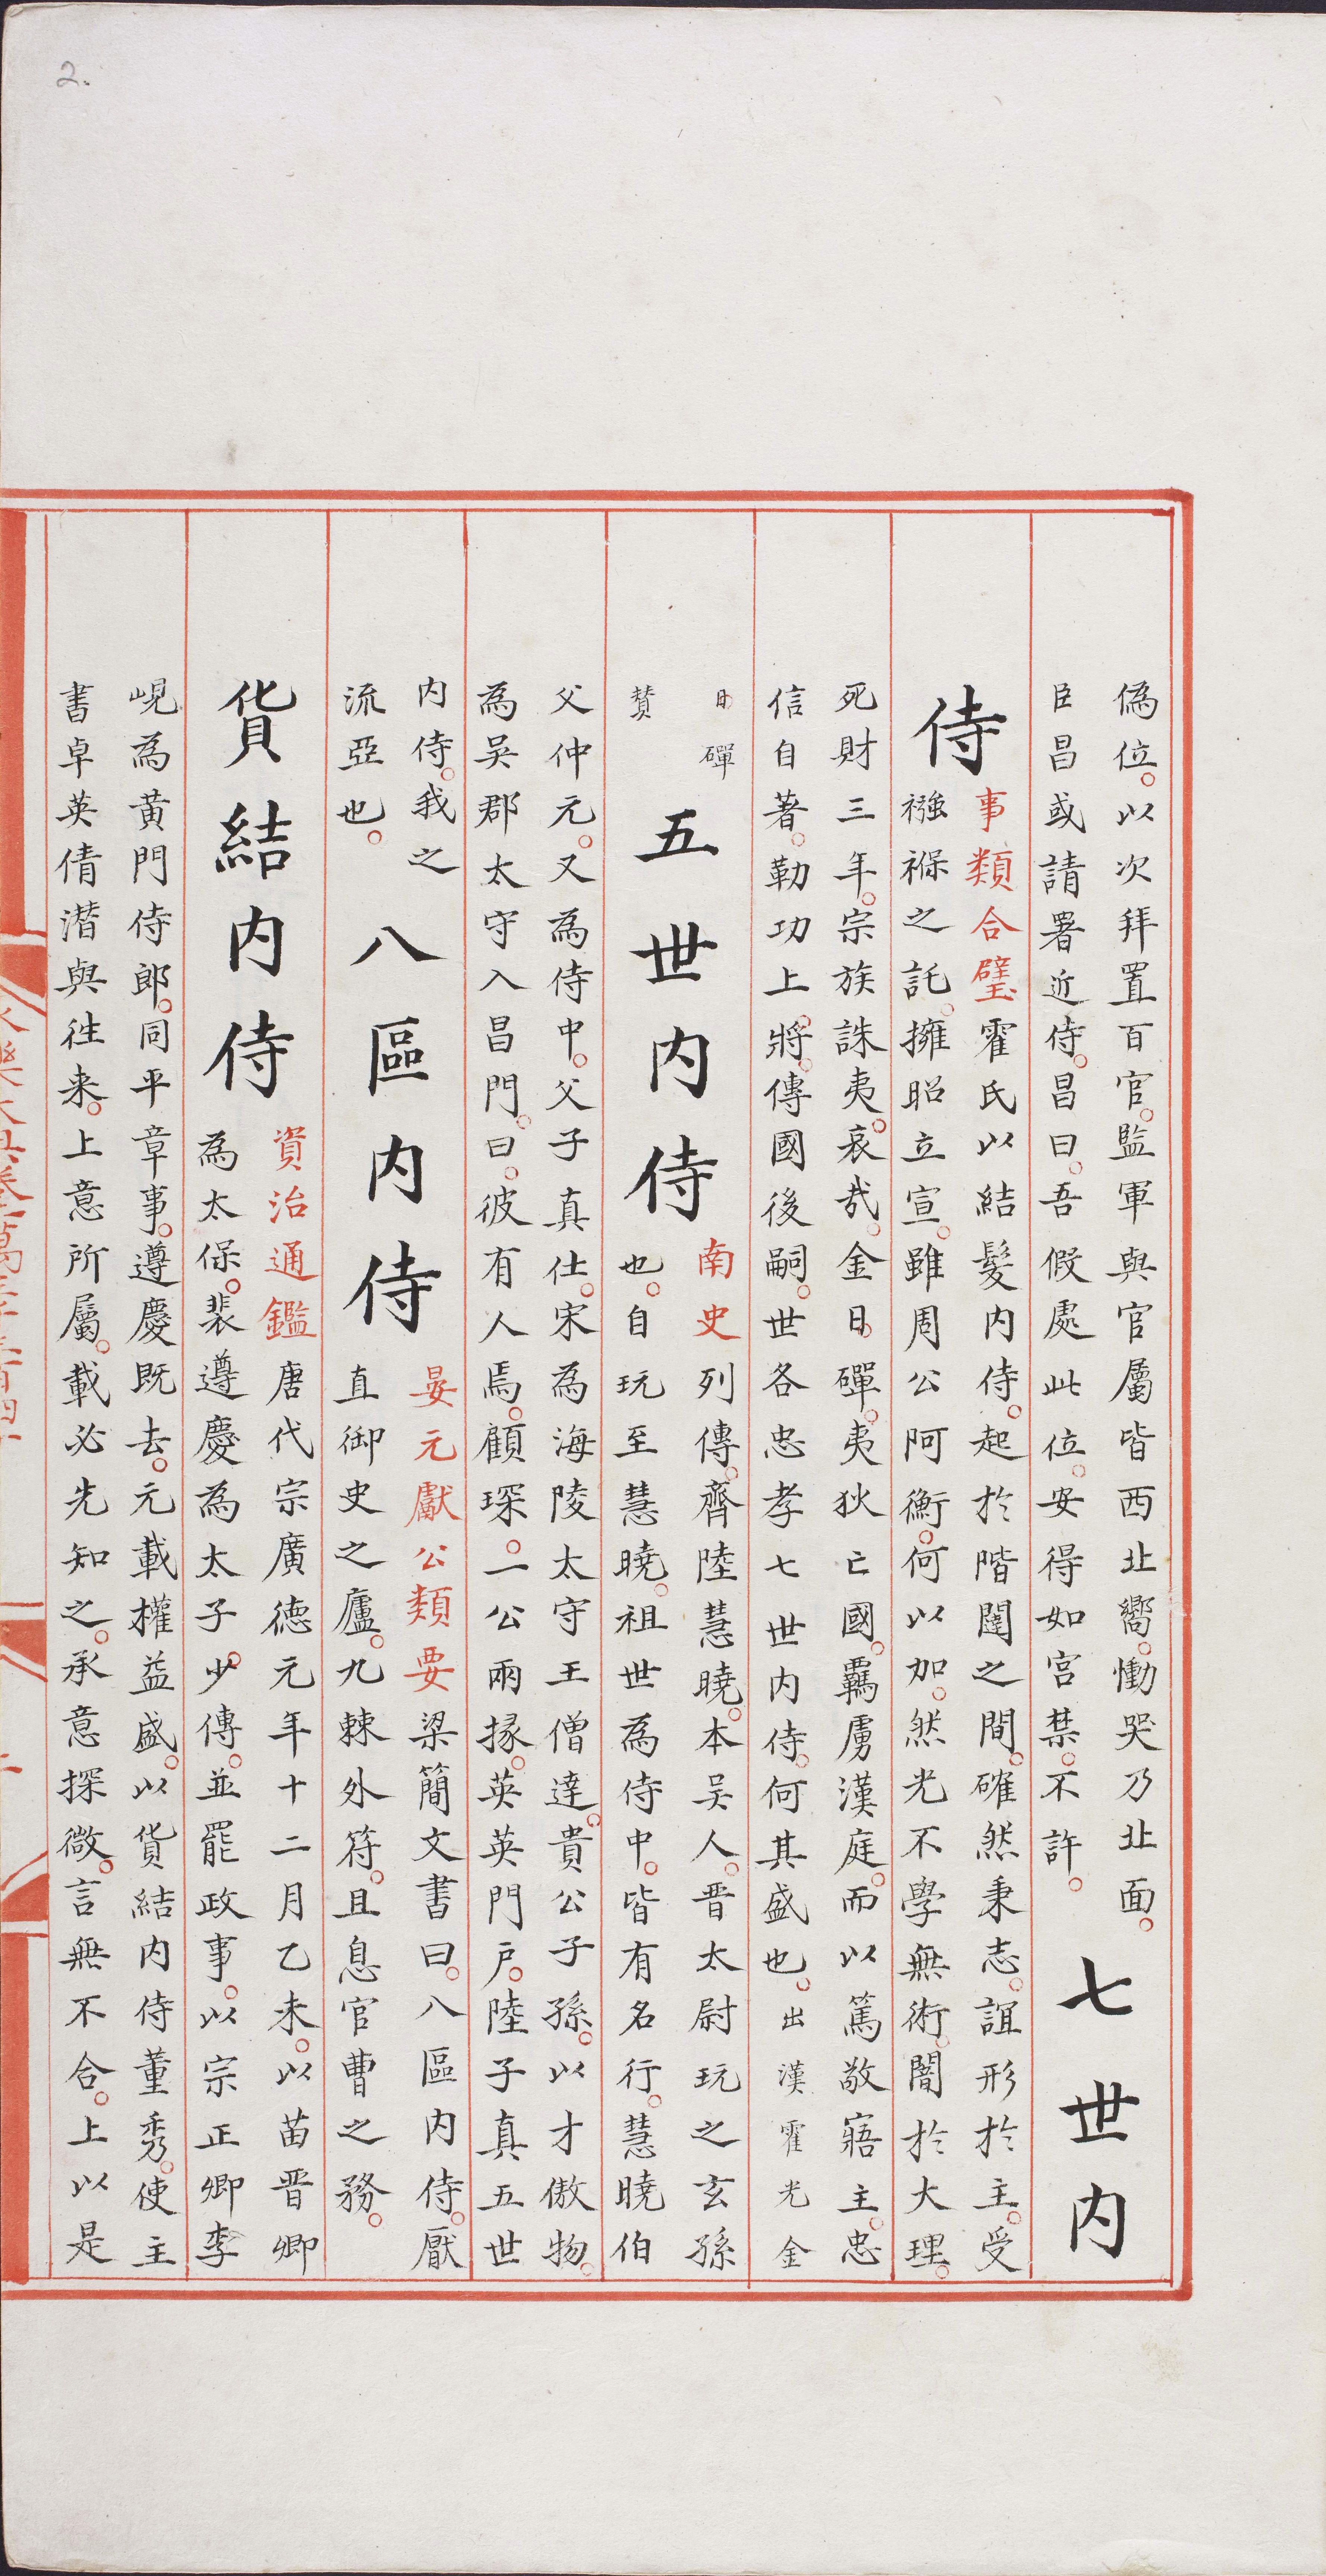 2.
偽位。以次拜置百官。監軍與官屬皆西北嚮。慟哭乃北面。
臣昌或請署近侍。昌曰。吾假處此位。安得如宮禁。不許。
七世内
侍
事類合璧霍氏以結髮内侍。起於階闥之間。確然秉志。誼形於主。受
襁褓之託。擁昭立宣。雖周公阿衡。何以加。然光不學無術。闇於大理。
死財三年。宗族誅夷。哀哉。金日磾。夷狄亡國。羈虜漢庭。而以篤敬寤主。忠
信自著。勒功上將。傳國後嗣。世各忠孝七世内侍。何其盛也。出漢霍光金
日磾
賛
五世内侍
南史列傳。齊陸慧曉。本吳人。晋太尉玩之玄孫
也。自玩至慧曉。祖世為侍中。皆有名行。慧曉伯
父仲元。又為侍中。父子真仕。宋為海陵太守王僧達。貴公子孫。以才傲物。
為吳郡太守入昌門。曰。彼有人焉。顧琛。一公兩掾。英英門户。陸子真五世
内侍。我之
流亞也。
八區内侍
晏元獻公類要梁簡文書曰。八區内侍。厭
直御史之廬。九棘外符。且息官曹之務。
貨結内侍
資治通鑑唐代宗廣德元年十二月乙未。以苗晋卿
為太保。裴遵慶為太子少傅。並罷政事。以宗正卿李
峴為黄門侍郎。同平章事。遵慶既去。元載權益盛。以貨結内侍董秀。使主
書卓英倩潛與徃来。上意所屬。載必先知之。承意探微。言無不合。上以是
永樂大典卷之一萬三千三百四十